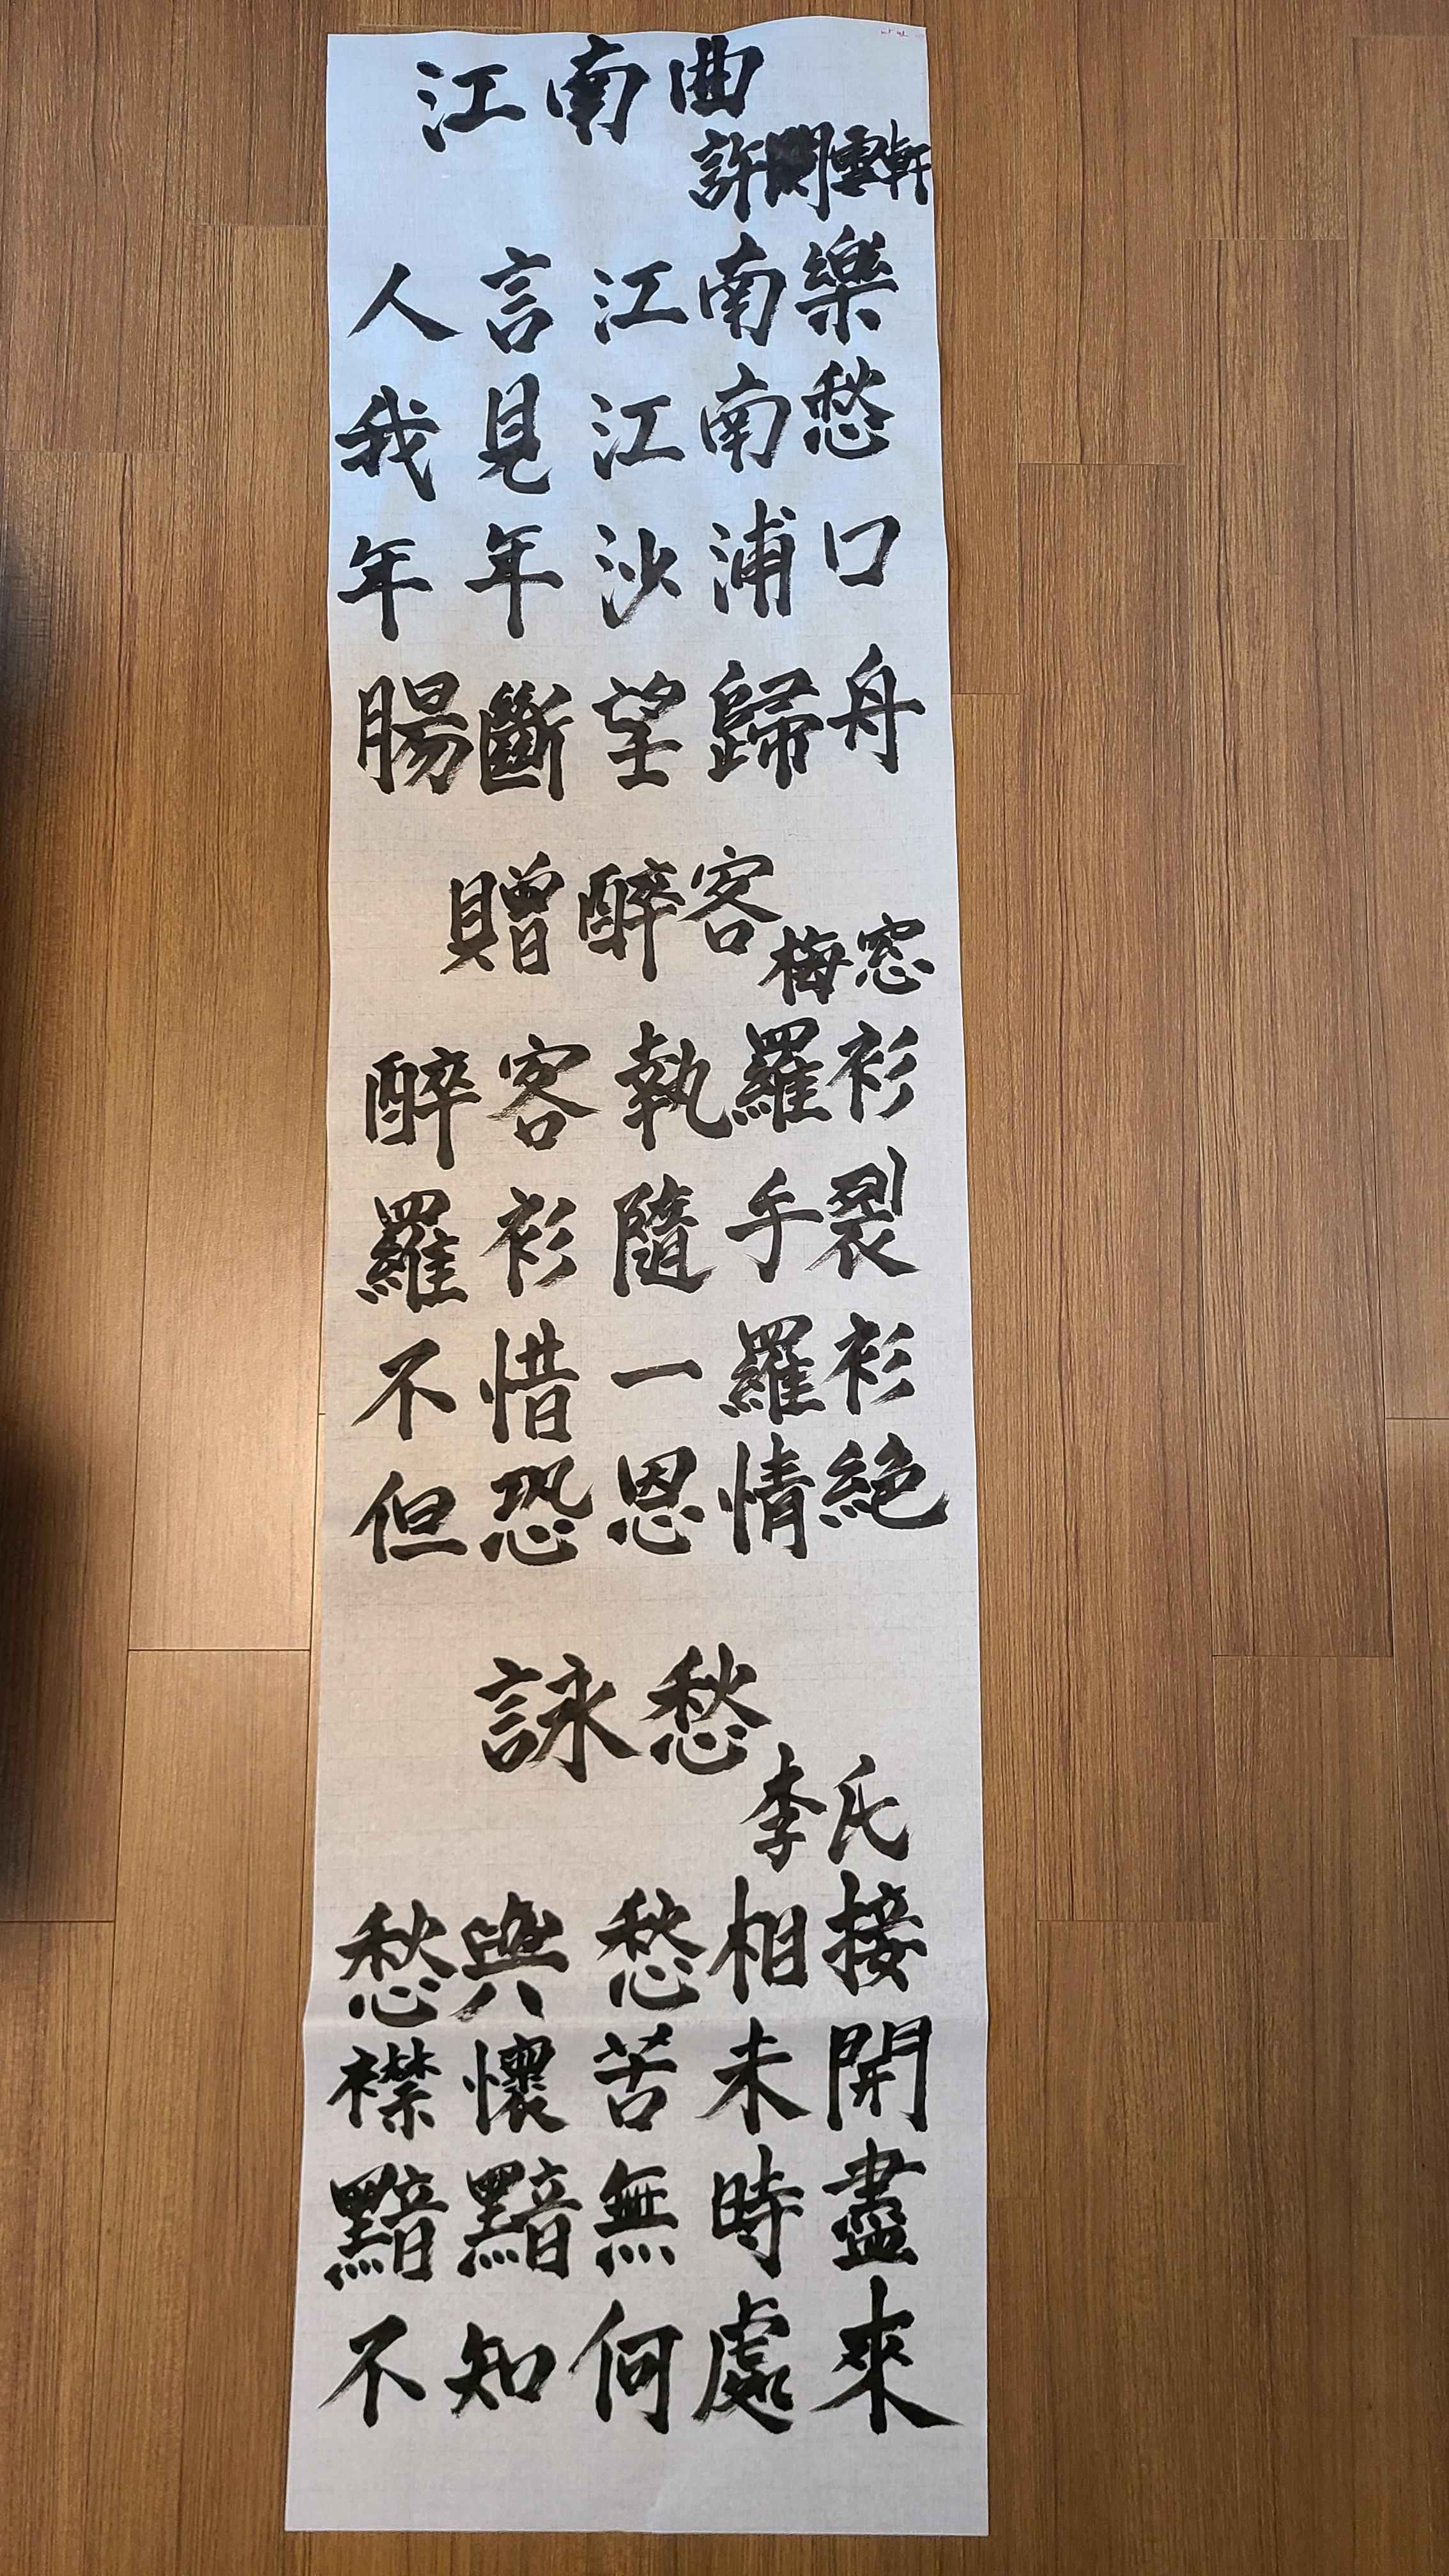 江南曲
許 雪軒
人言江南樂
我見江南愁
年年沙浦口
腸斷望歸舟
贈醉客
梅窓
醉客執羅衫
羅衫隨手裂
不惜一羅衫
但恐恩情絶
詠愁
李氏
愁與愁相接
襟懷苦未開
黯黯無時盡
不知何處來